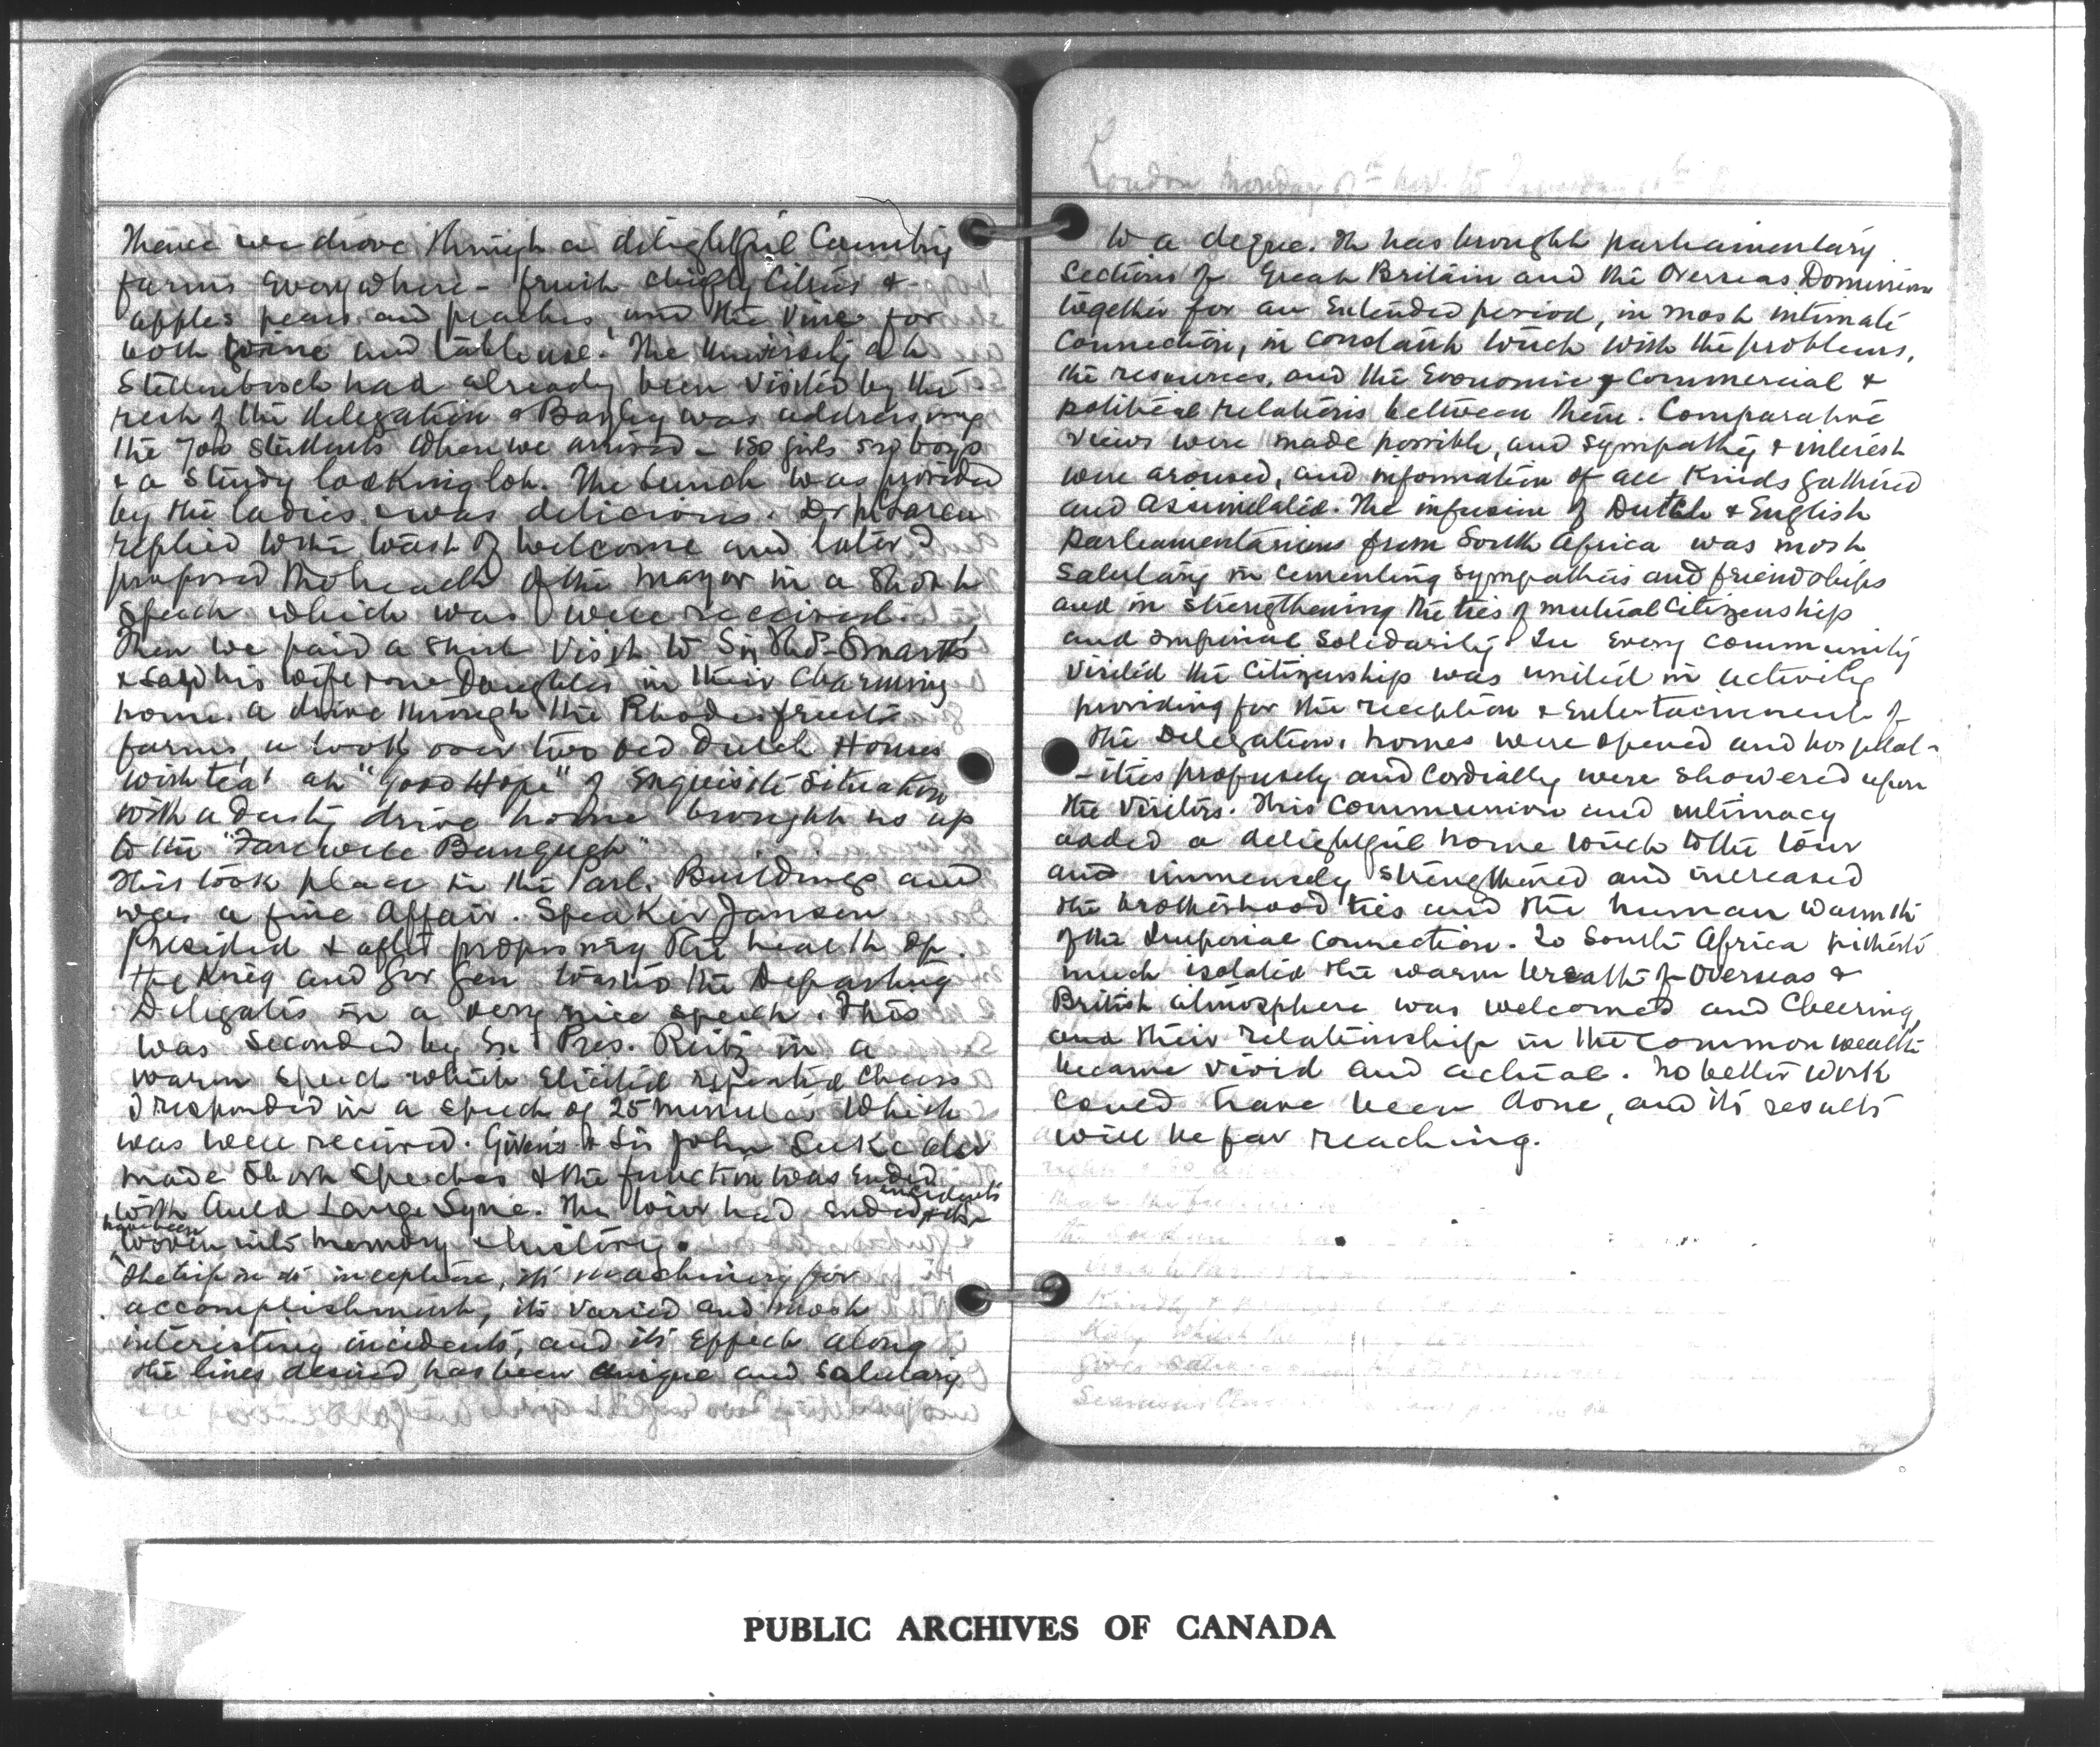 Thence we drove through a delightful Country
farms everywhere - fruit chiefly Citrus &
apples pears and peaches, and the Vine for
both wine and table use. The University at
Stellenbosch had already been visited by the
rest of the delegation & Bagley was addressing
the 700 students when we arrived - 150 girls 550 boys
& a sturdy looking lot. The lunch was provided
by the ladies & was delicious. Dr McLaren
replied to the toast of welcome and later I
proposed the health of the mayor in a short
speech which was well received.
Then we paid a short visit to Sir Thos Smartt's
& saw his wife & one Daughter in their charming
home. a drive through the Rhodes fruit
farms, a look over two old Dutch Houses
with tea at "Good Hope" of exquisite situation
with a dusty drive home brought us up
to the "Farewell Banquet"
This took place in the Parl. Buildings and
was a fine Affair. Speaker Jansen
Presided & after proposing the health of
the King and Gov Gen toasted the Departing
Delegates in a very nice speech. This
was seconded by Ex Pres. Reitz in a
warm speech which elicited repeated cheers
I responded in a speech of 25 minutes which
was well received. Givens & Sir John Luke also
made short speeches & the function was ended
with Auld Lange Syne. The tour had ended & its incidents
have been
woven into memory & history.
The trip in its inception, its machinery for
accomplishment, its varied and most
interesting incidents, and its effect along
the lines desired has been unique and salutary
London, Monday
to a degree. It has brought parliamentary
Sections of Great Britain and the Overseas Dominions
together for an Extended period, in most intimate
Connection, in constant touch with the problems,
the resources, and the Economic & Commercial &
political relations between them. Comparative
views were made possible, and sympathy & interest
were aroused, and information of all kinds gathered
and assimilated. The infusion of Dutch & English
Parliamentarians from South Africa was most
salutary in cementing sympathies and friendships
and in strengthening the ties of mutual Citizenship
and Imperial Solidarity. In every community
visited the Citizenship was united in activity
providing for the reception & entertainment of
the Delegation, homes were opened and hospital-
-ities profusely and cordially were showered upon
the visitors. This communion and intimacy
added a delightful home touch to the tour
and immensely strengthened and increased
the brotherhood ties and the human warmth
of the Imperial Connection. To South Africa hitherto
much isolated the warm breath of Overseas &
British atmosphere was welcomed and Cheering,
and their relationship in the Commonwealth
became vivid and actual. No better work
could have been done, and its results
will be far reaching.
PUBLIC ARCHIVES OF CANADA